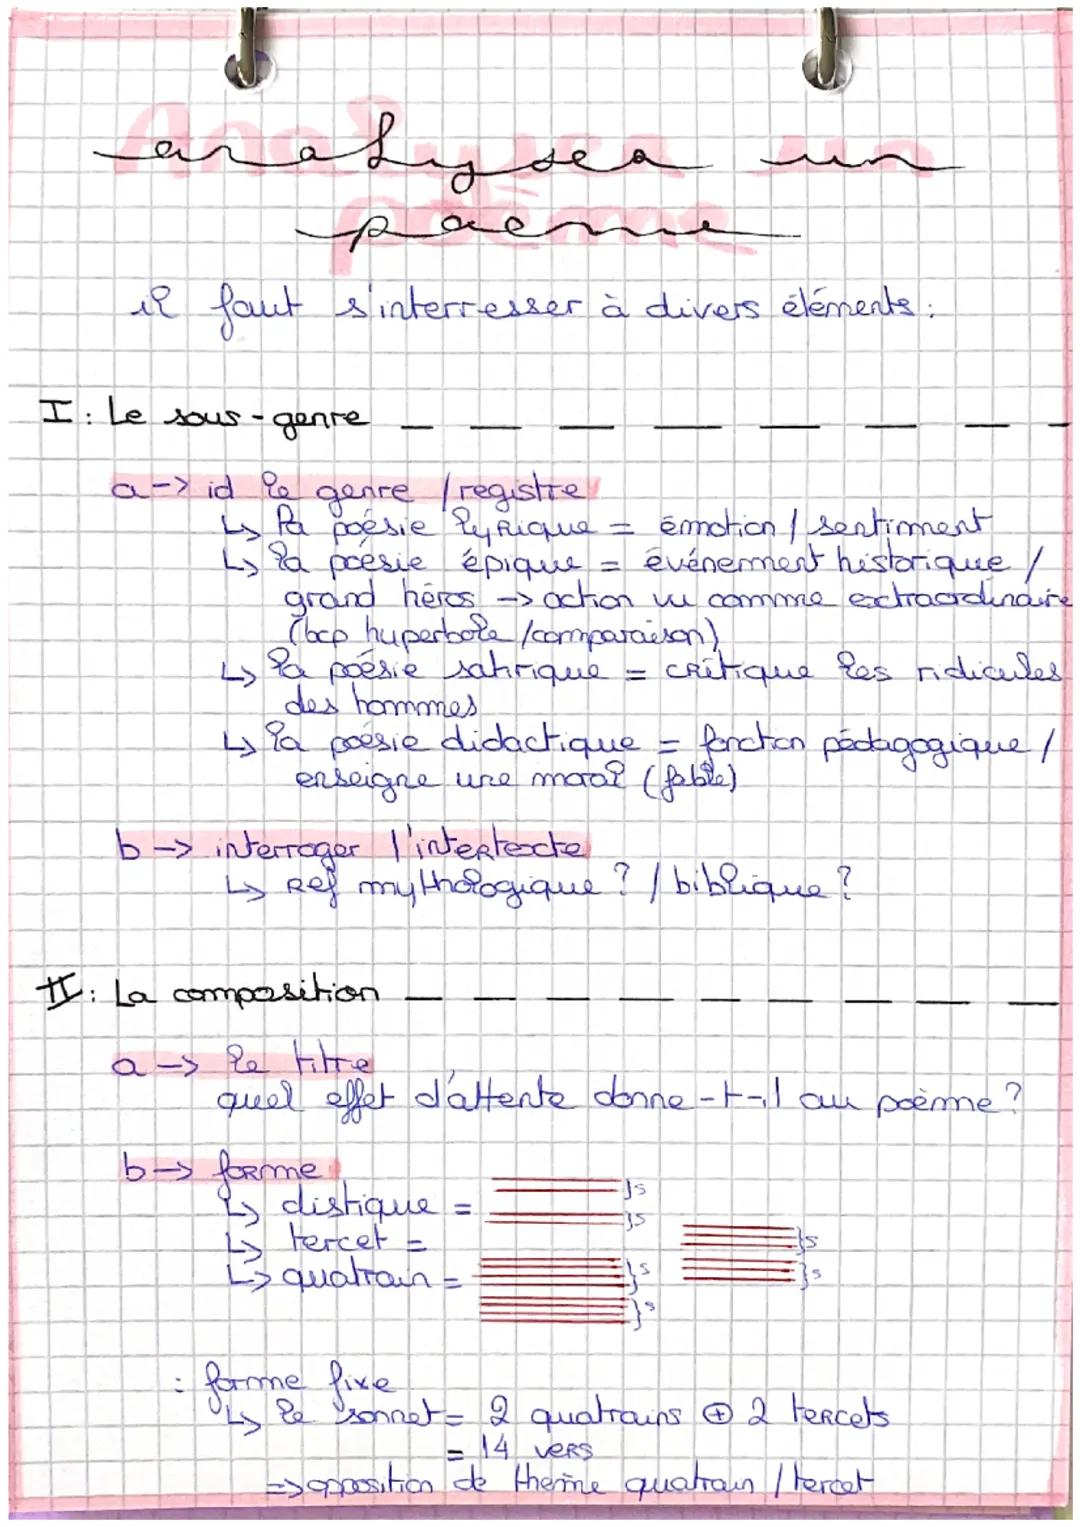 analyser un
poème
il faut s'interresser à divers éléments :
I : Le sous-genre
a-> id le genre / registre
↳ la poésie lyrique = émotion / sentiment
↳ la poésie épique = événement historique /
grand héros -> action vu comme extraordinaire
(bcp huperbole / comparaison)
↳ la poésie satirique = critique les ridicules
des hommes
↳ la poésie didactique = fonction pédagogique /
enseigne une moral (fable)
b -> interroger l'intertexte
↳ Ref mythologique ? / biblique ?
II : La composition
a -> le titre
quel effet d'attente donne-t-il au poème ?
b -> forme
↳ distique = }s
}s
↳ tercet = }s
↳ quatrain = }s }s
}s
: forme fixe
↳ le sonnet = 2 quatrains ⊕ 2 tercets
= 14 vers
=> opposition de thème quatrain / tercet